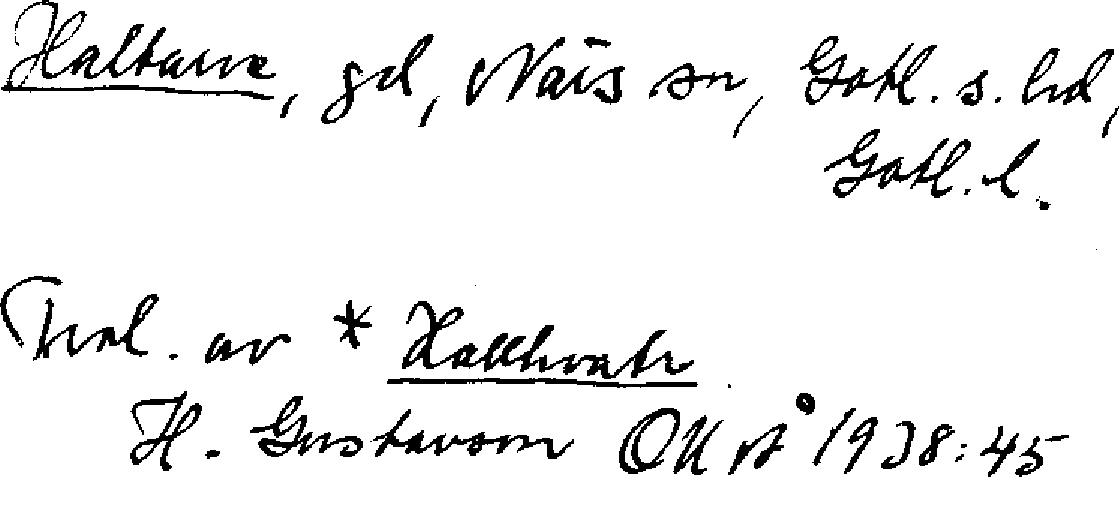 Haltarve, gd, Näs sn, Gotl. s. hd,
Gotl. l.
Trol. av * Hallhvatr
H. Gustavson OUÅ 1938:45